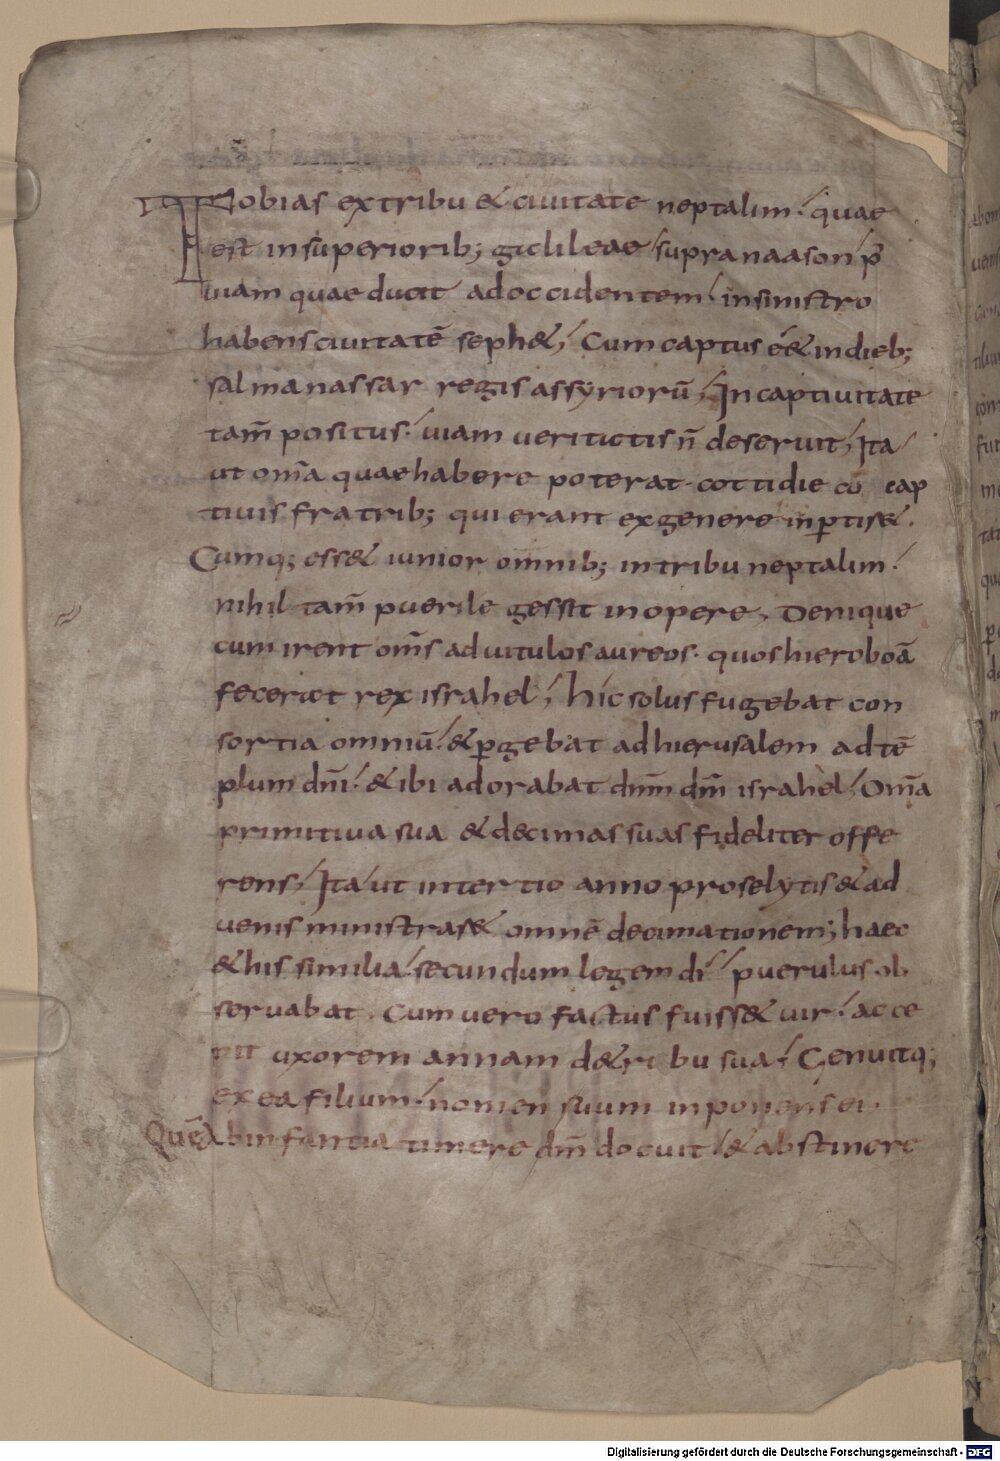 Tobias ex tribu & ciuitate neptalim. quae
est in superiorib; galileae supra naason p̄
uiam quae ducit ad occidentem. in sinistro
habens ciuitatē seph&; Cum captus e&& in dieb;
salmanassar regis assyriorū; In captiuitate
tam̄ positus. uiam ueritatis n̄ deseruit; Ita
ut om̄a quae habere poterat. cottidie cū cap
tiuis fratrib; qui erant ex genere inp̄tis&.
Cumq; ess& iunior omnib; in tribu neptalim.
nihil tam̄ puerile gessit in opere. Denique
cum irent om̄s ad uitulos aureos. quos hieroboā
fecerat rex israhel; hic solus fugebat con
sortia omniū. & p̄gebat ad hierusalem ad tē
plum dn̄i. & ibi adorabat dnm̄ dm̄ israhel; Om̄a
primitiua sua & decimas suas fideliter offe
rens; Ita ut in tertio anno proselytis & ad
uenis ministras& omnē decimationem; haec
& his similia. secundum legem di puerulus ob
seruabat. Cum uero factus fuiss& uir. acce
pit uxorem annam d& ri bu sua. Genuitq;
ex ea filium. nomen suum inponens ei.
Quē ab infantia timere dm̄ docuit. & abstinere
Digitalisierung gefördert durch die Deutsche Forschungsgemeinschaft - DFG